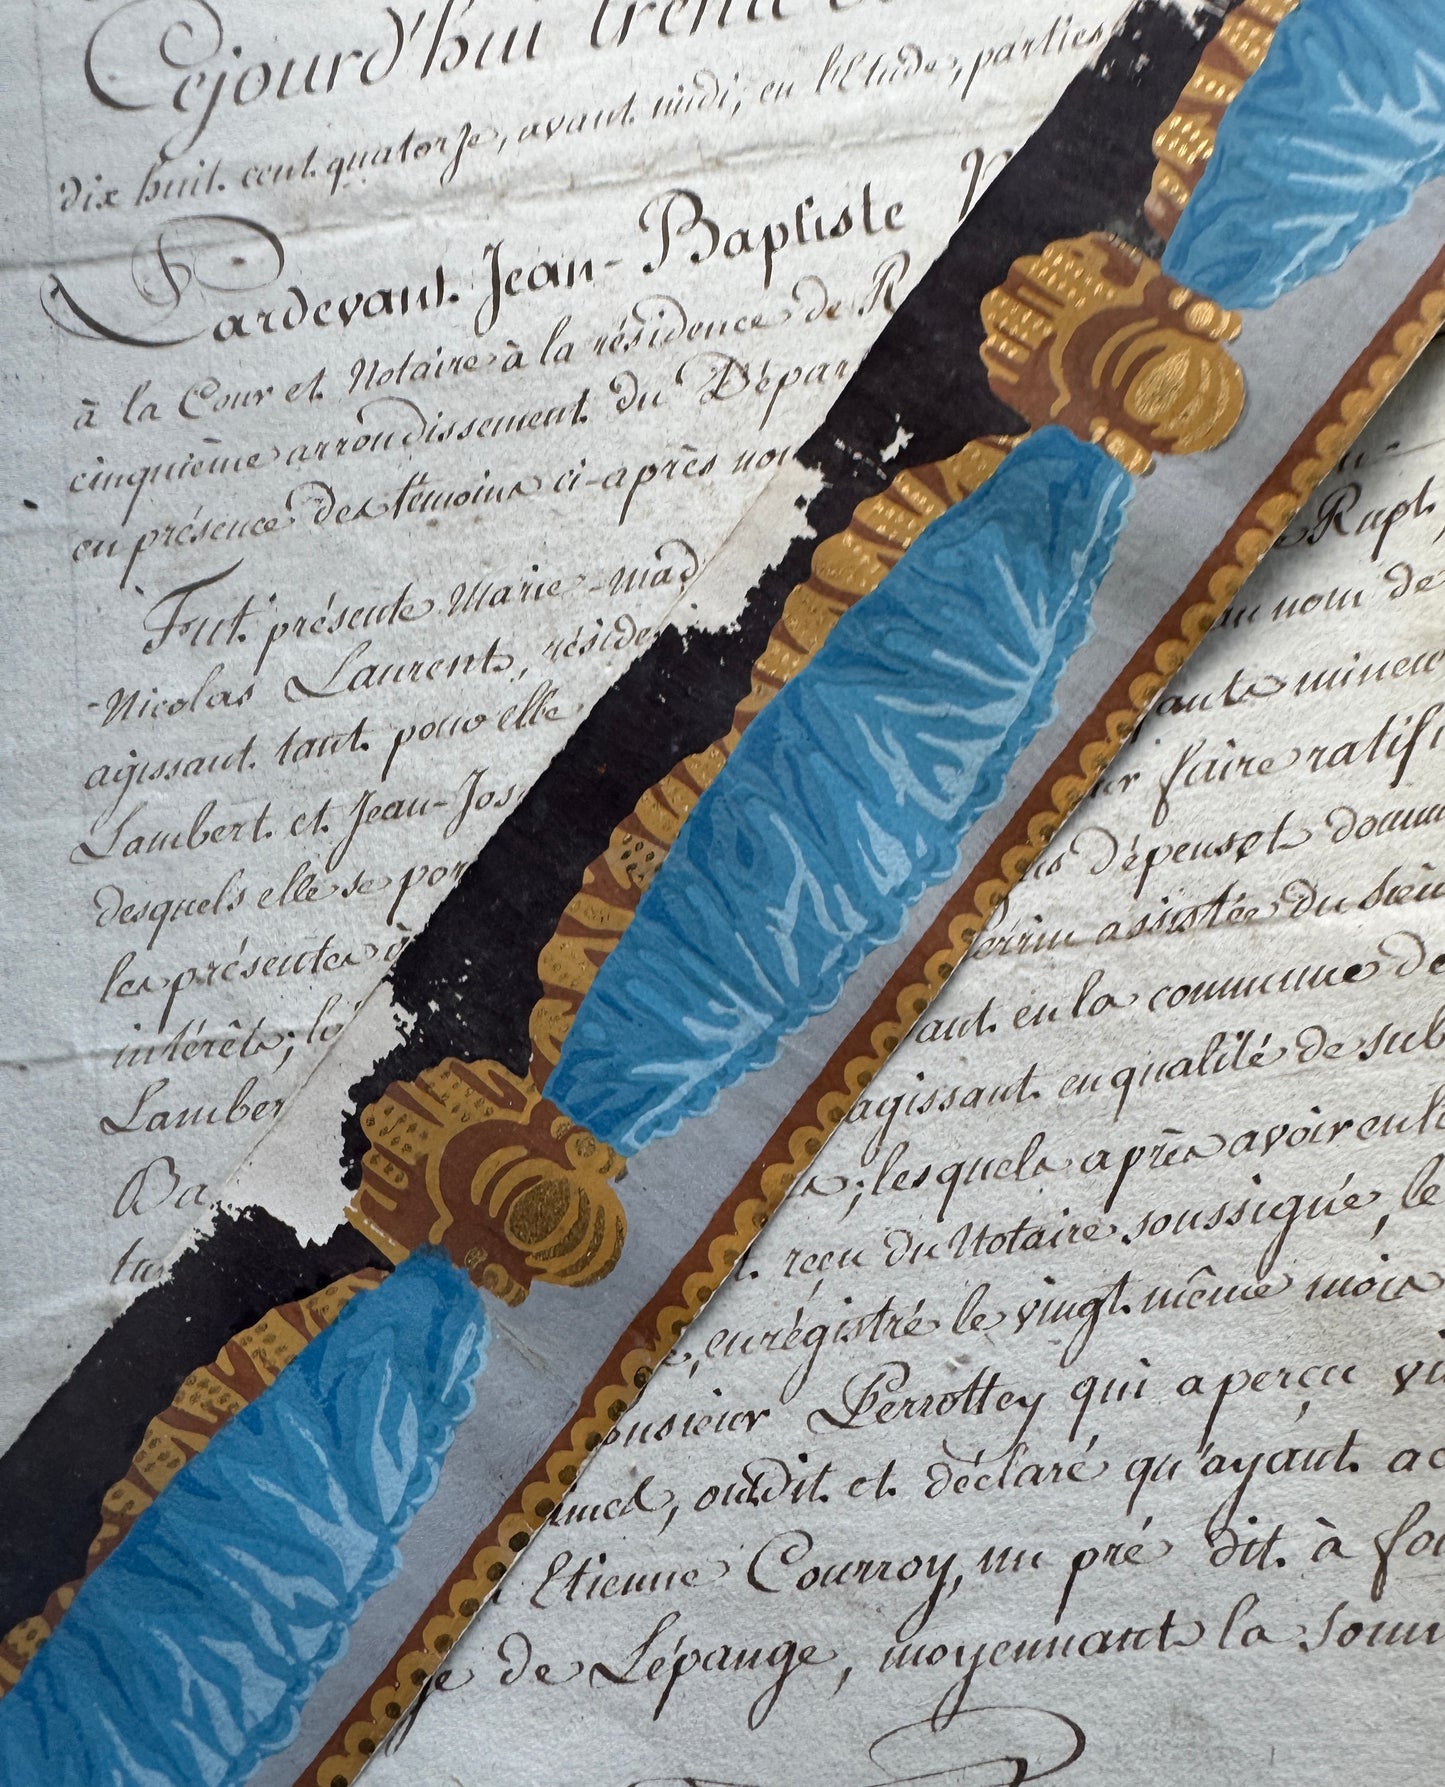 Cejourd'hui trent
dix huit cent quatorze, avant midi, en l'Etude, parties
Pardevant Jean-Baptiste
à la Cour et Notaire à la résidence de R
cinquième arrondissement du Dépar
en présence des témoins ci-après nom
Fut présente Marie-Mad
-Nicolas Laurent, réside
agissant tant pour elle
Lambert et Jean-Jos
desquels elle se por
les présentes à
intérêts; le
Lamber
Ba
tu
Rupt,
au nom de
ants mineur
ur faire ratifi
us Dépens et domm
errin assistée du Sieur
ant en la commune de
agissant en qualité de sub
s; lesquels après avoir enl
t reçu du Notaire soussigné, le
e, enregistré le vingt même mois
onsieur Perrottey qui aperçu vi
imed, ont dit et déclaré qu'ayant ac
Etienne Courroy, un pré dit à fo
ge de Lépange, moyennant la somm